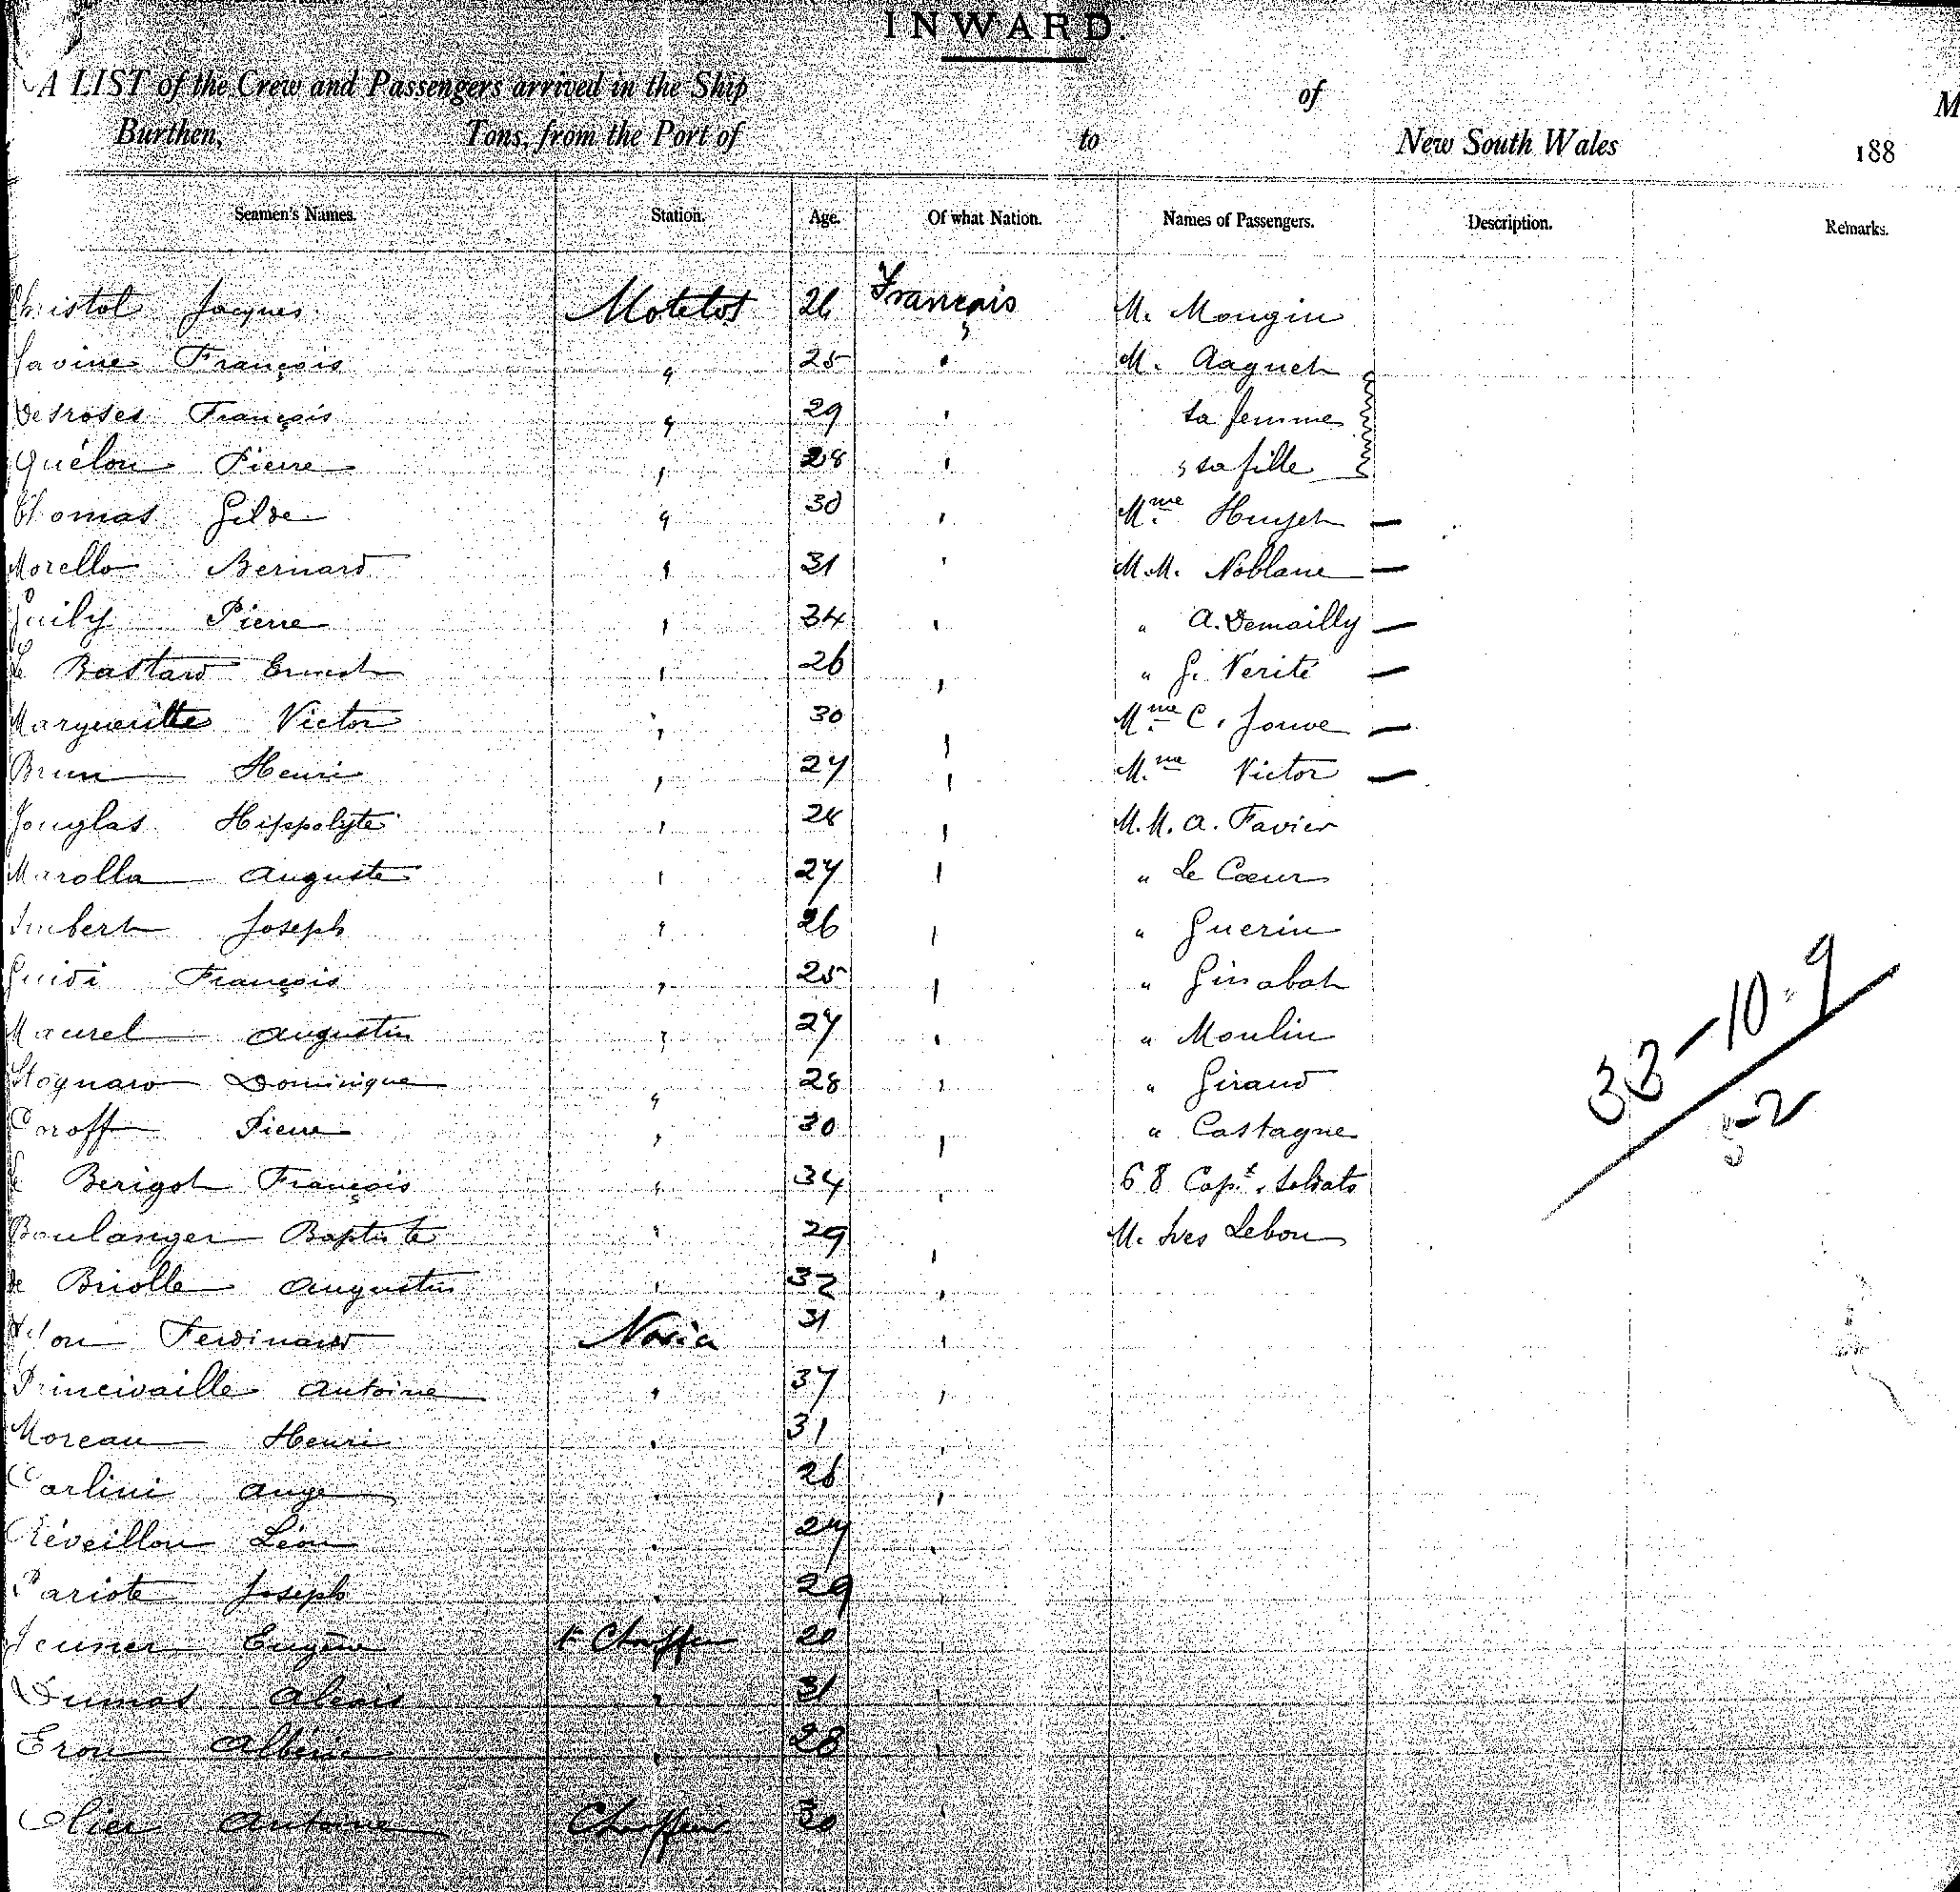 INWARD.
A LIST of the Crew and Passengers arrived in the Ship of M
Burthen, Tons, from the Port of to New South Wales 188
Seamen's Names. Station. Age. Of what Nation. Names of Passengers. Description. Remarks.
Christol Jacques Motelot 26 Français M. Mougin
Savine François " 25 " M. Aaguet
Desroses François " 29 " Sa femme
Quélou Pierre " 28 " " sa fille
Thomas Gilde " 30 " Mme Huyet —
Morello Bernard " 31 " M.M. Noblane —
Guily Pierre " 34 " " A. Demailly —
Le Bastard Ernest " 26 " " G. Vérité —
Margueritte Victor " 30 " Mme C. Jouve —
Brun Henri " 27 " Mme Victor —
Jouglas Hippolyte " 28 " M.M. A. Favier
Marolla Auguste " 27 " " Le Cœur
Imbert Joseph " 26 " " Guerin
Guidi François " 25 " " Ginabat
Maurel Augustin " 27 " " Moulin
Stognaro Dominique " 28 " " Giraud
Coroff Pierre " 30 " " Castagne
Le Berigot François " 34 " 68 Capt. Soldats
Boulanger Baptiste " 29 " M. Ives Lebou
de Briolle Augustin " 32 "
Ferdinand Novia 31 "
Princivaille Antoine " 37 "
Moreau Henri " 31 "
Carlini Ange " 26 "
Réveillou Léon " 27 "
Pariote Joseph " 29 "
Jeuner Eugène Chauffeur 20 "
Dumas Alexis " 31 "
Erou Albéric " 28 "
Olier Antoine Chauffeur 30 "
33-10-9
52